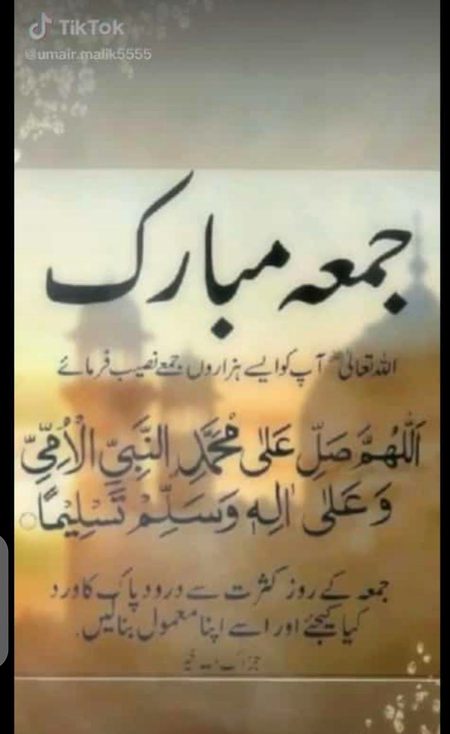 TikTok
@umair.malik5555
جمعہ مبارک
اللہ تعالیٰ آپ کو ایسے ہزاروں جمعے نصیب فرمائے
اَللّٰهُمَّ صَلِّ عَلٰى مُحَمَّدِ النَّبِيِّ الْاُمِّيِّ
وَعَلٰى اٰلِهٖ وَسَلِّمْ تَسْلِيْمًا
جمعہ کے روز کثرت سے درود پاک کا ورد
کیا کیجئے اور اسے اپنا معمول بنا لیں۔